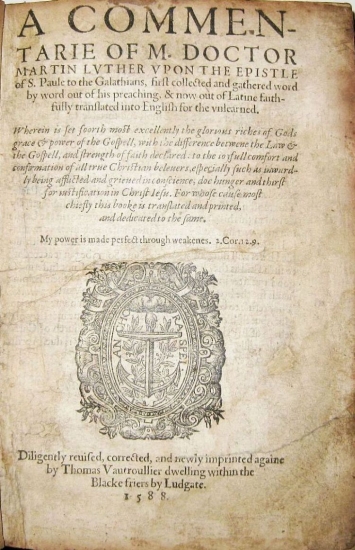 A COMMEN-
TARIE OF M. DOCTOR
MARTIN LVTHER VPON THE EPISTLE
of S. Paule to the Galathians, first collected and gathered word
by word out of his preaching, & now out of Latine faith-
fully translated into English for the vnlearned.
Wherein is set foorth most excellently the glorious riches of Gods
grace & power of the Gospell, with the difference betwene the Law &
the Gospell, and strength of faith declared: to the ioyfull comfort and
confirmation of all true Christian beleuers, especially such as inward-
ly being afflicted and grieued in conscience, doe hunger and thirst
for iustification in Christ Iesu. For whose cause most
chiefly this booke is translated and printed,
and dedicated to the same.
My power is made perfect through weakenes. 2.Cor.12.9.
ANCHORA SPEI
Diligently reuised, corrected, and newly imprinted againe
by Thomas Vautroullier dwelling within the
Blacke friers by Ludgate.
1588.